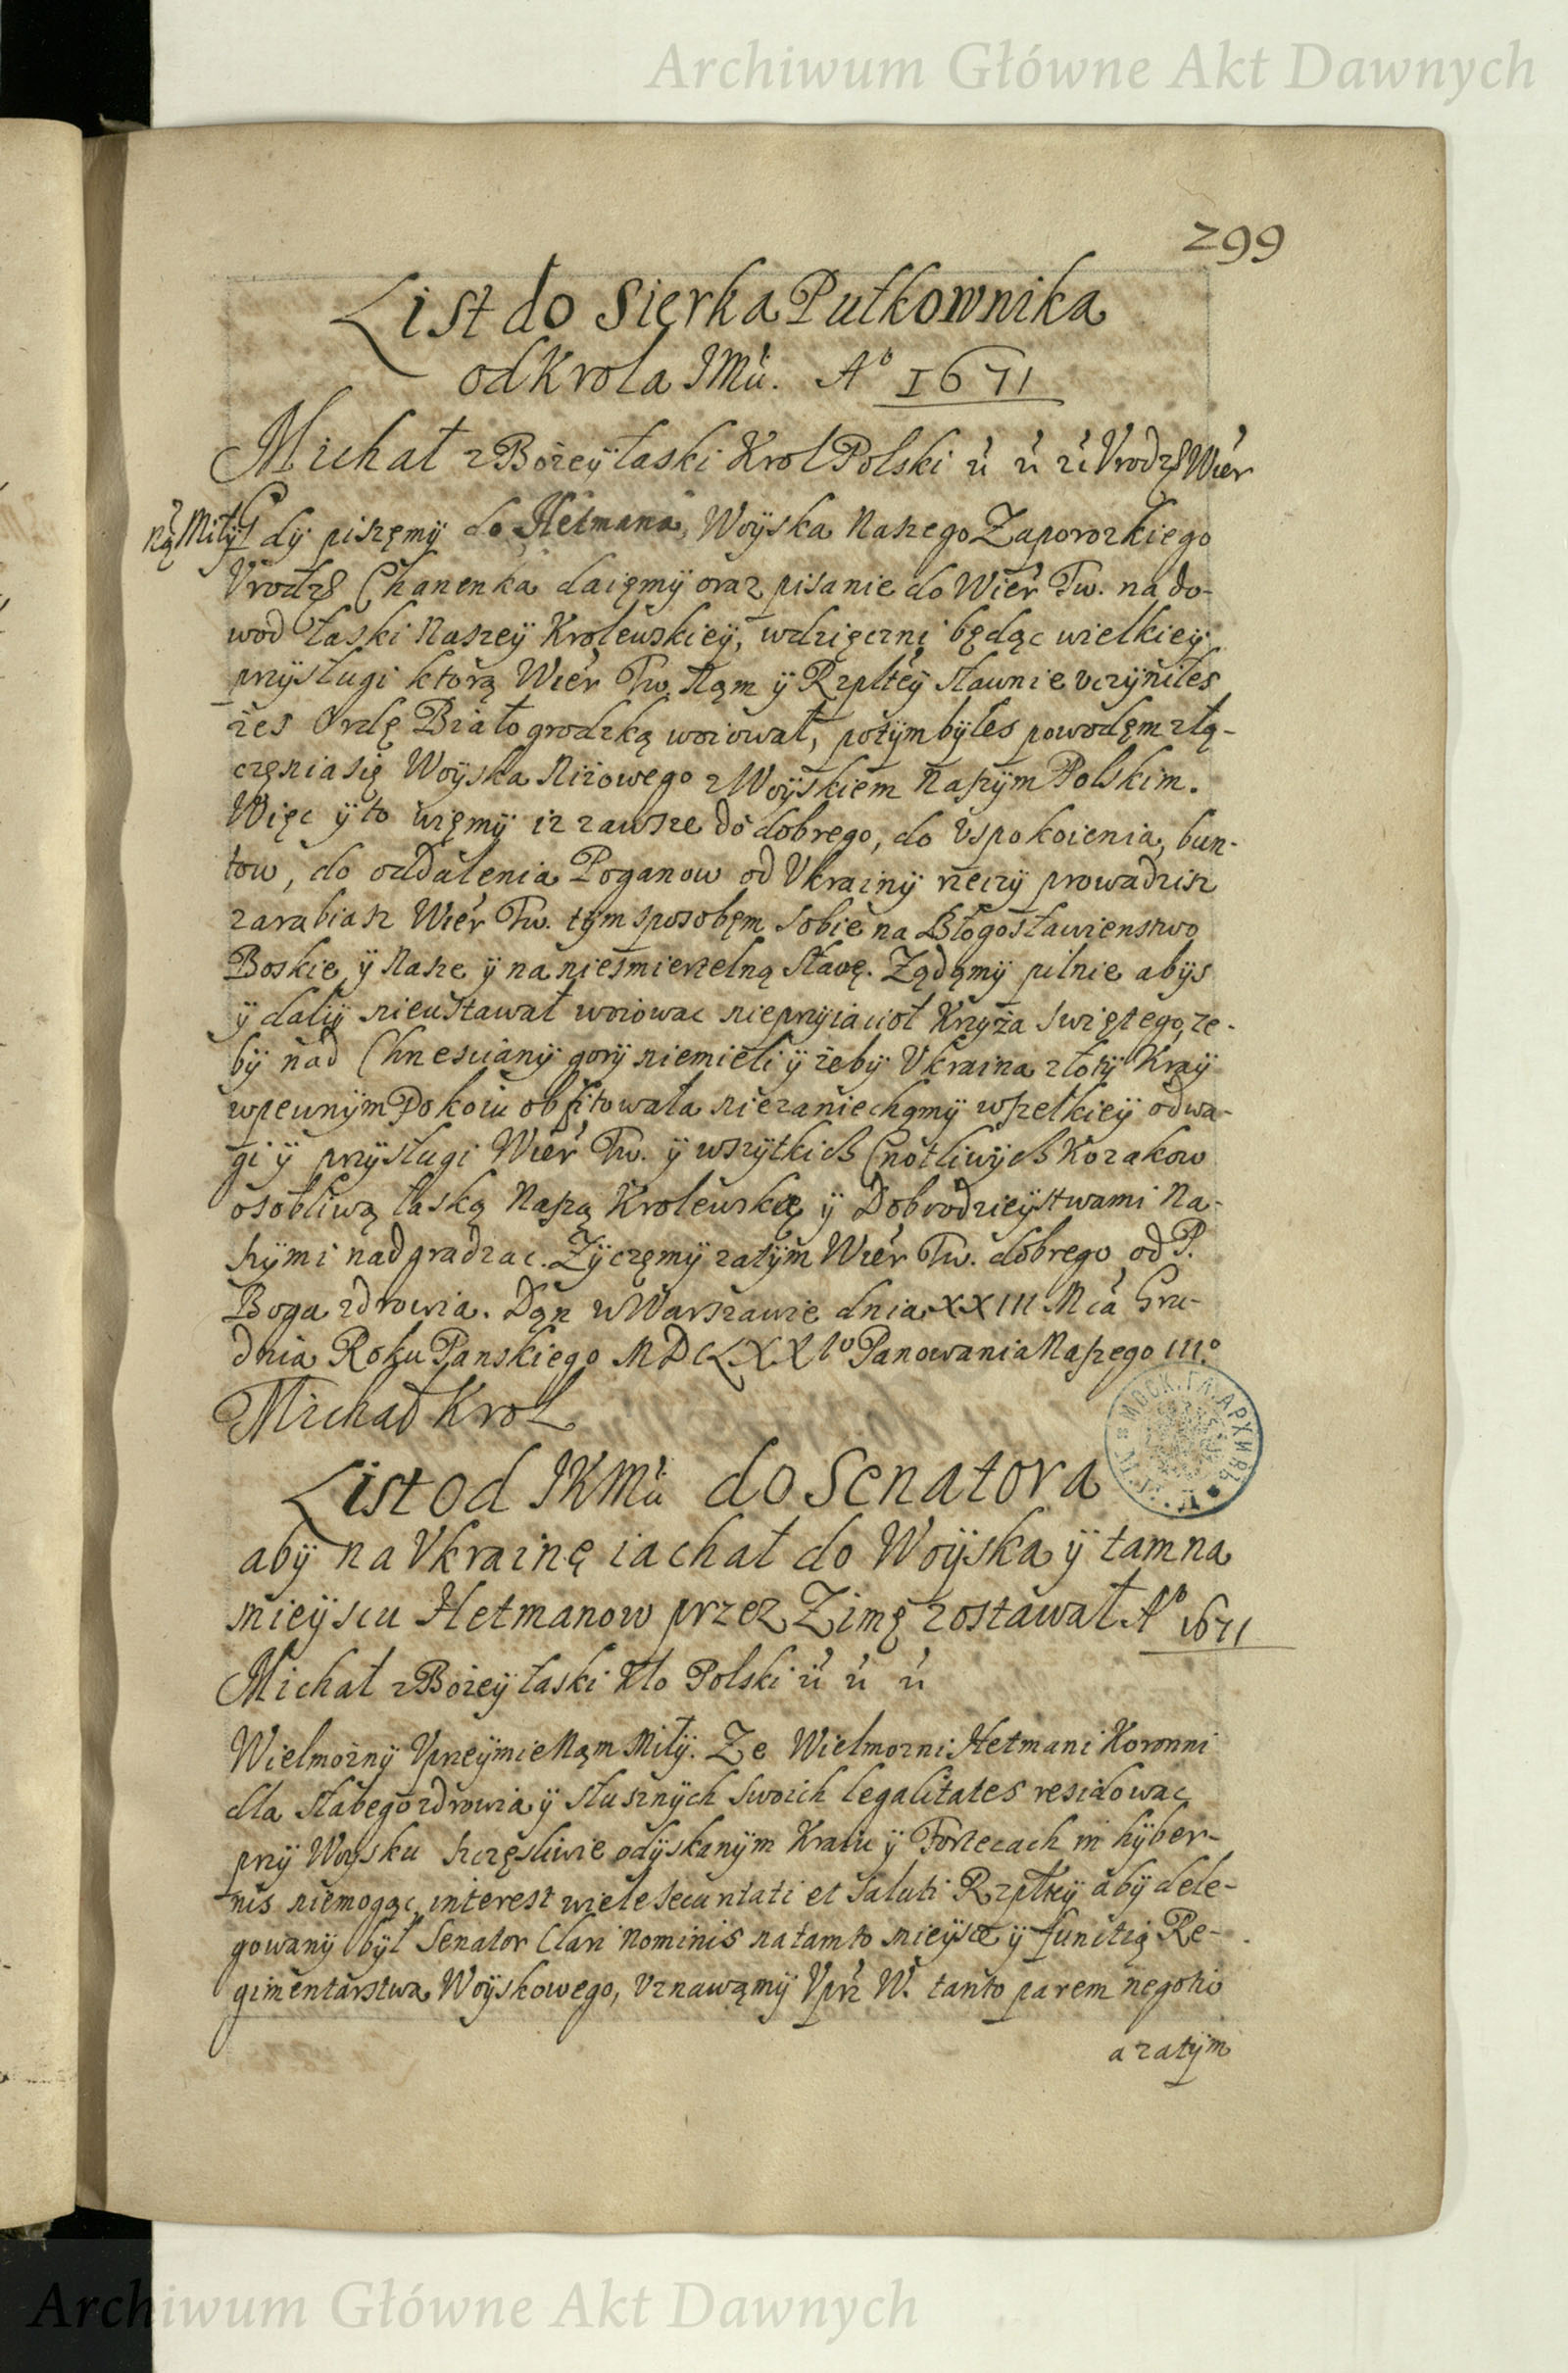 Archiwum Główne Akt Dawnych
299
List do Sierka Pułkownika
od Krola JMci. A° 1671
Michał z Bożeÿ łaski Krol Polski ẃ ẃ ẃ Vrodz Wier
ną Miłÿ Gdÿ piszęmÿ do Hetmana Woÿska Naszego Zaporozkiego
Vrodz Chanenka daięmÿ oraz pisanie do Wier Tw. na do-
wod łaski Naszeÿ Krolewskieÿ, wdzięczni będąc wielkieÿ
przÿsługi ktorą Wier Tw. Nąm ÿ Rzpłteÿ sławnie vczÿniłes
żes Ordę Białogrodzką woiował, potÿm bÿłes powodęm złą-
częnia się Woÿska Niżowego z Woÿskiem Naszÿm Polskim.
Więc ÿ to więmÿ iz zawsze do dobrego, do Vspokoienia bun-
tow, do oddalenia Poganow od Vkrainÿ rzeczÿ prowadzisz
zarabiasz Wier Tw. tÿm sposobęm sobie na Błogosławienstwo
Boskie ÿ Nasze ÿ na niesmiertelną sławę. Ządąmÿ pilnie abÿs
ÿ dalÿ nieustawał woiowac nieprzÿiacioł Krzÿża Swiętego, że-
bÿ nad Chrzescianÿ gorÿ niemieli ÿ żebÿ Vkraina złotÿ Kraÿ
w pewnÿm Pokoiu obfitowała niezaniechąmÿ wszelkieÿ odwa-
gi ÿ przÿsługi Wier Tw. ÿ wszÿtkich Cnotliwÿch Kozakow
osobliwą łaską Naszą Krolewską ÿ Dobrodzieÿstwami Na-
szÿmi nadgradzac. Zÿczęmÿ zatÿm Wier Tw. dobrego od P.
Boga zdrowia. Dąn w Warszawie dnia XXIII Mca Gru-
dnia Roku Panskiego MDCLXXI° Panowania Naszego III°
Michał Krol
List od JKMci do Senatora
abÿ na Vkrainę iachał do Woÿska ÿ tam na
mieÿscu Hetmanow przez Zimę zostawał A° 1671
Michał z Bożeÿ łaski Kro Polski ẃ ẃ ẃ
Wielmożnÿ Vprzeÿmie Nąm Miłÿ. Ze Wielmozni Hetmani Koronni
dla słabego zdrowia ÿ słusznÿch swoich legalitates residowac
przÿ Woÿsku szczęsliwie odÿskanÿm Kraiu ÿ Fortecach in hÿber-
nis niemogąc, interest wiele securitati et saluti Rzpłteÿ abÿ dele-
gowanÿ bÿł Senator Clari Nominis na tamto mieÿsce ÿ functią Re-
gimentarstwa Woÿskowego, Vznawąmÿ Vprz W. tanto parem negotio
a zatÿm
Archiwum Główne Akt Dawnych